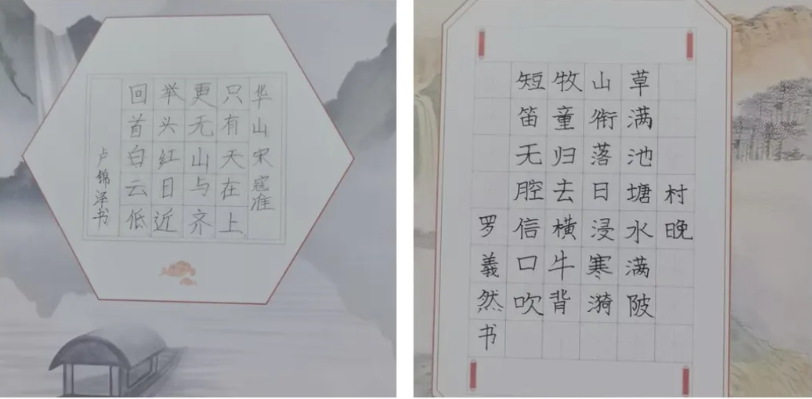 华山 宋 寇准
只有天在上
更无山与齐
举头红日近
回首白云低
卢锦泽书
村晚
草满池塘水满陂
山衔落日浸寒漪
牧童归去横牛背
短笛无腔信口吹
罗義然书